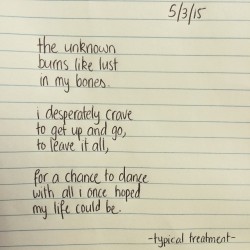 5/3/15
the unknown
burns like lust
in my bones.
i desperately crave
to get up and go,
to leave it all,
for a chance to dance
with all i once hoped
my life could be.
-typical treatment-